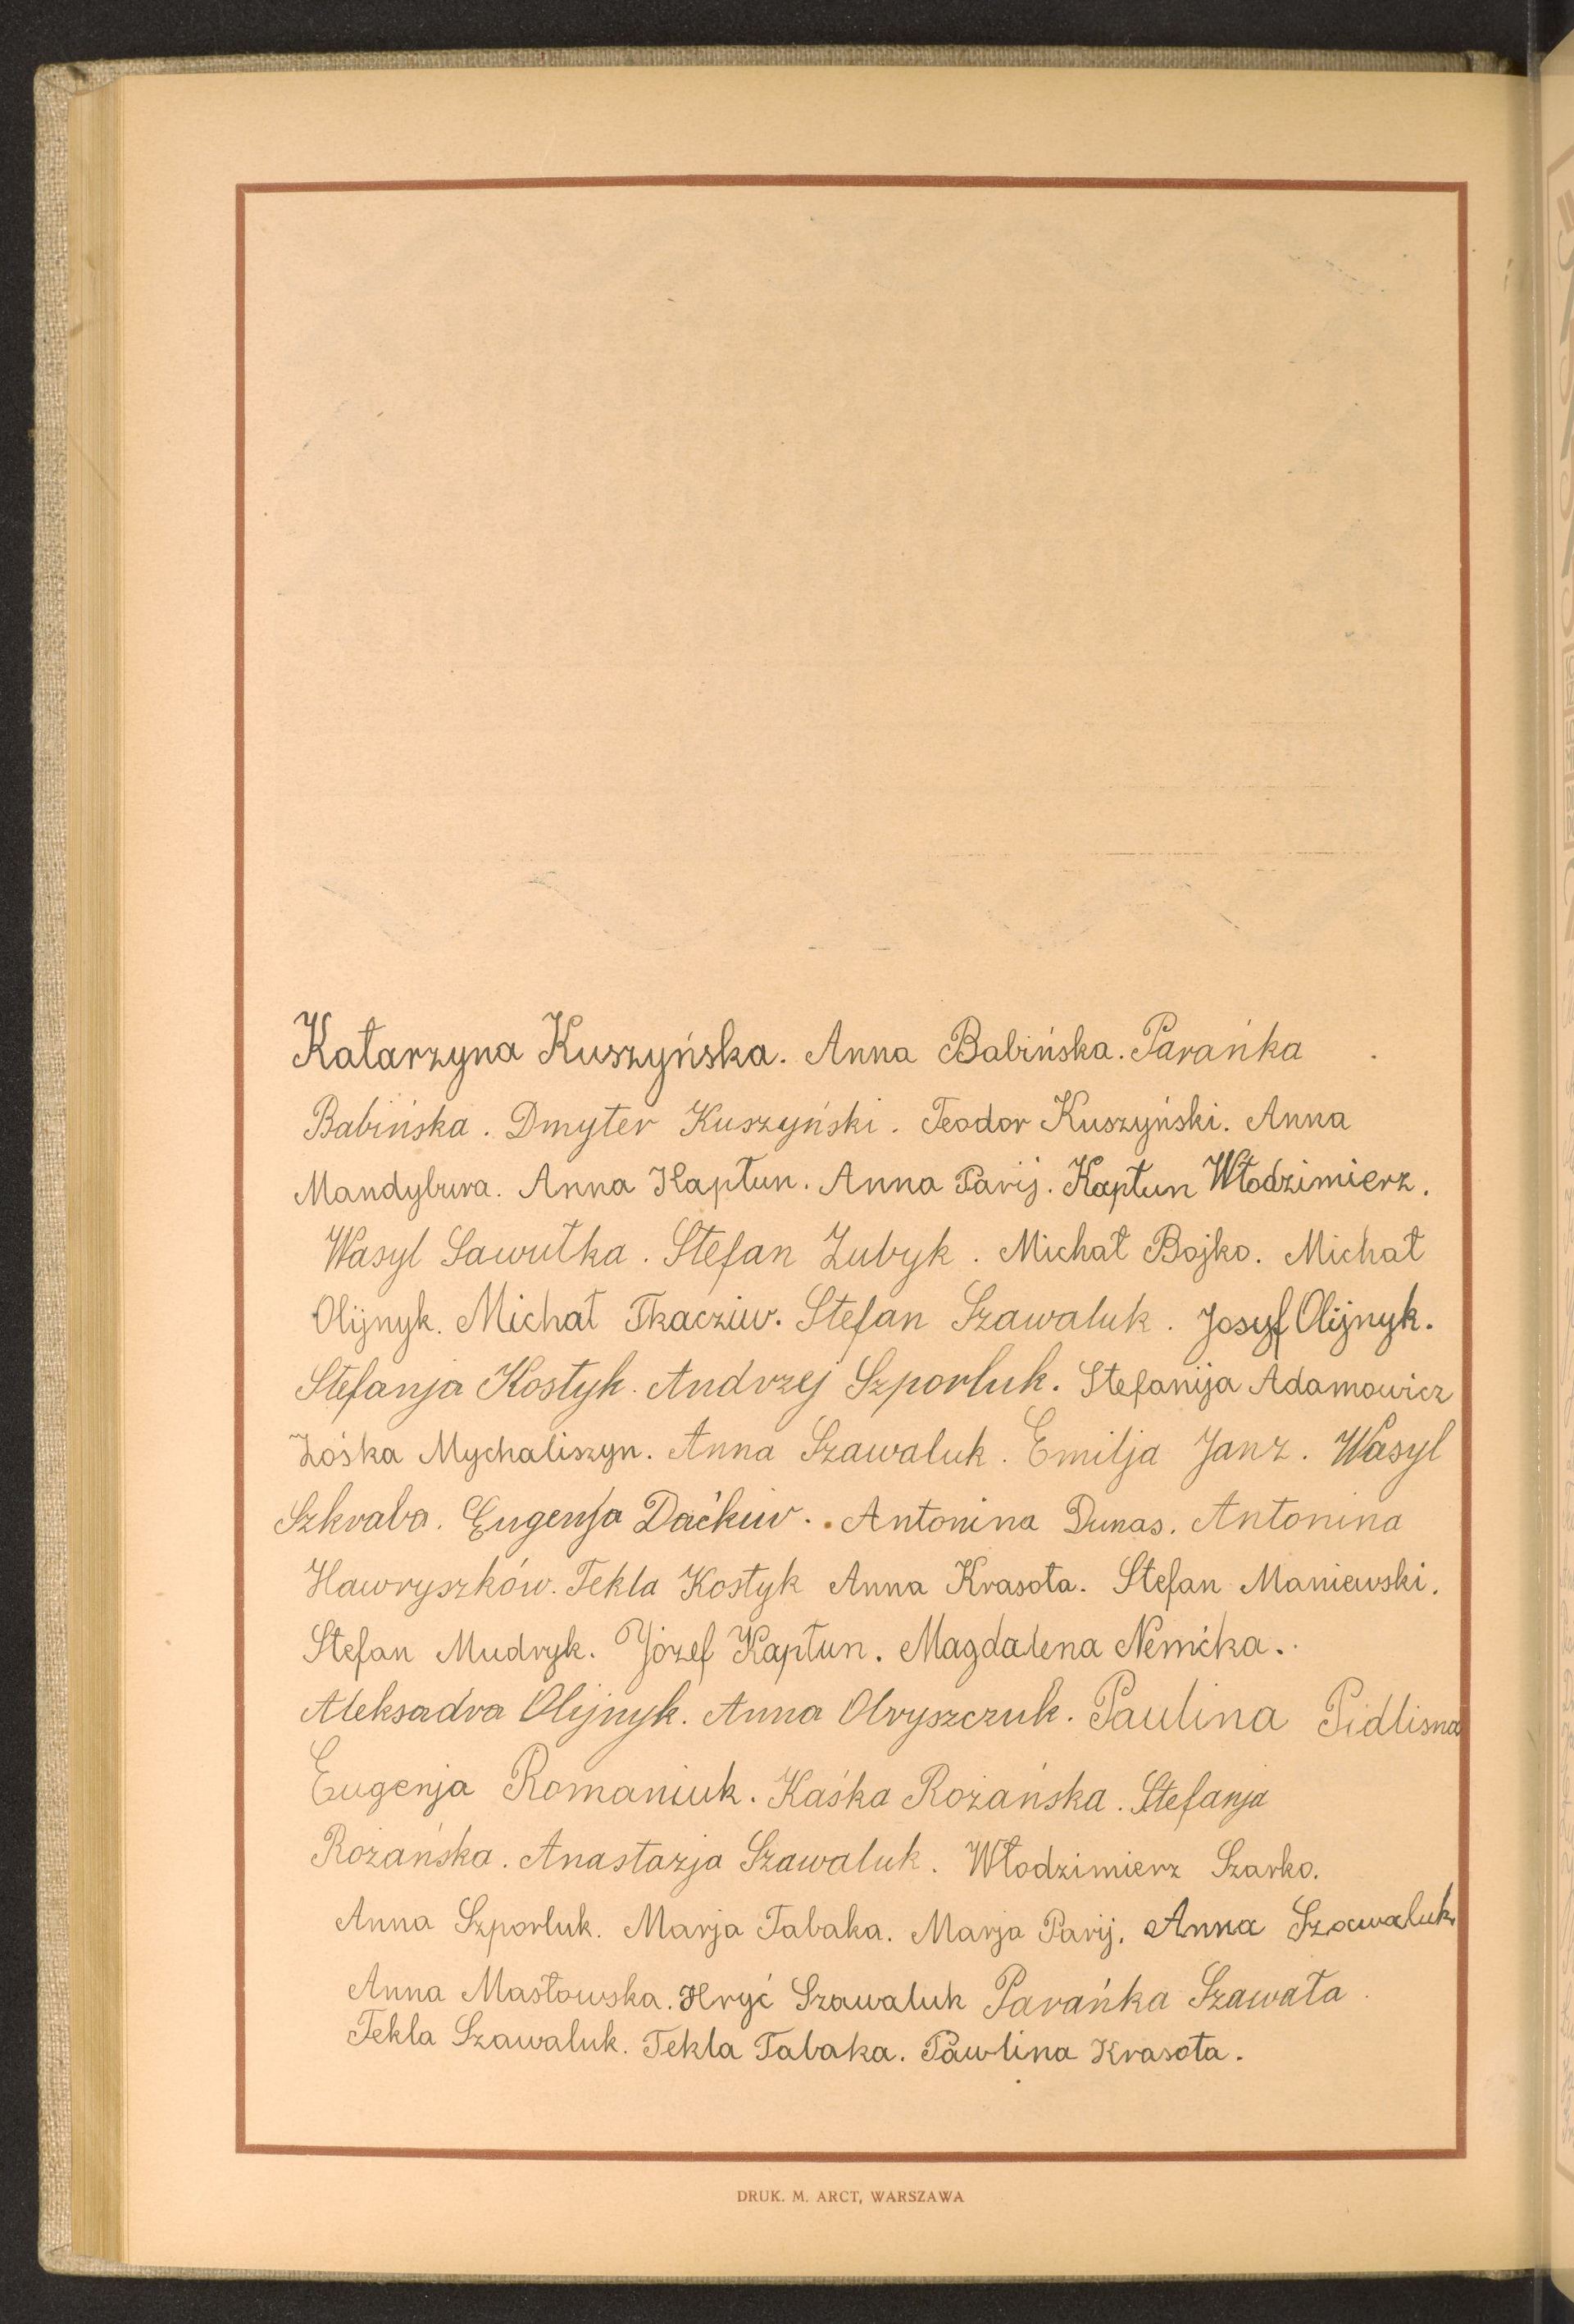 Katarzyna Kuszyńska. Anna Babińska. Parańka
Babińska. Dmyter Kuszyński. Teodor Kuszyński. Anna
Mandybura. Anna Kapłun. Anna Parij. Kapłun Włodzimierz.
Wasyl Sawułka. Stefan Zubyk. Michał Bojko. Michał
Olijnyk. Michał Tkacziw. Stefan Szawaluk. Josyf Olijnyk.
Stefanja Kostyk. Andrzej Szporluk. Stefanija Adamowicz
Zośka Mychaliszyn. Anna Szawaluk. Emilja Janz. Wasyl
Szkraba. Eugenja Daćkiw. Antonina Dunas. Antonina
Hawryszków. Tekla Kostyk Anna Krasota. Stefan Maniewski.
Stefan Mudryk. Józef Kapłun. Magdalena Nemićka.
Aleksadra Olijnyk. Anna Olryszczuk. Paulina Pidlisna
Eugenja Romaniuk. Kaśka Rożańska. Stefanja
Rożańska. Anastazja Szawaluk. Włodzimierz Szarko.
Anna Szporluk. Marja Tabaka. Marja Parij. Anna Szawaluk
Anna Masłowska. Hryć Szawaluk Parańka Szawała.
Tekla Szawaluk. Tekla Tabaka. Pawlina Krasota.
DRUK. M. ARCT, WARSZAWA